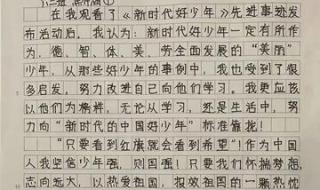 在我观看了《新时代好少年》先进事迹发
布活动后，我认为：新时代好少年一定有所作
为，德、智、体、美、劳全面发展的“美丽”
少年，从那些好少年的事例中，我也受到了很
多启发，努力改进自己向他们学习。我更应该
以他们为榜样，无论从学习，还是生活中，努
力向“新时代的中国好少年”标准靠拢！
“只要看到红旗就会看到希望”！作为中国
人我坚信少年强，则国强！只要我们怀揣梦想，
志向远大，以热爱祖国，报效祖国的一颗热忱